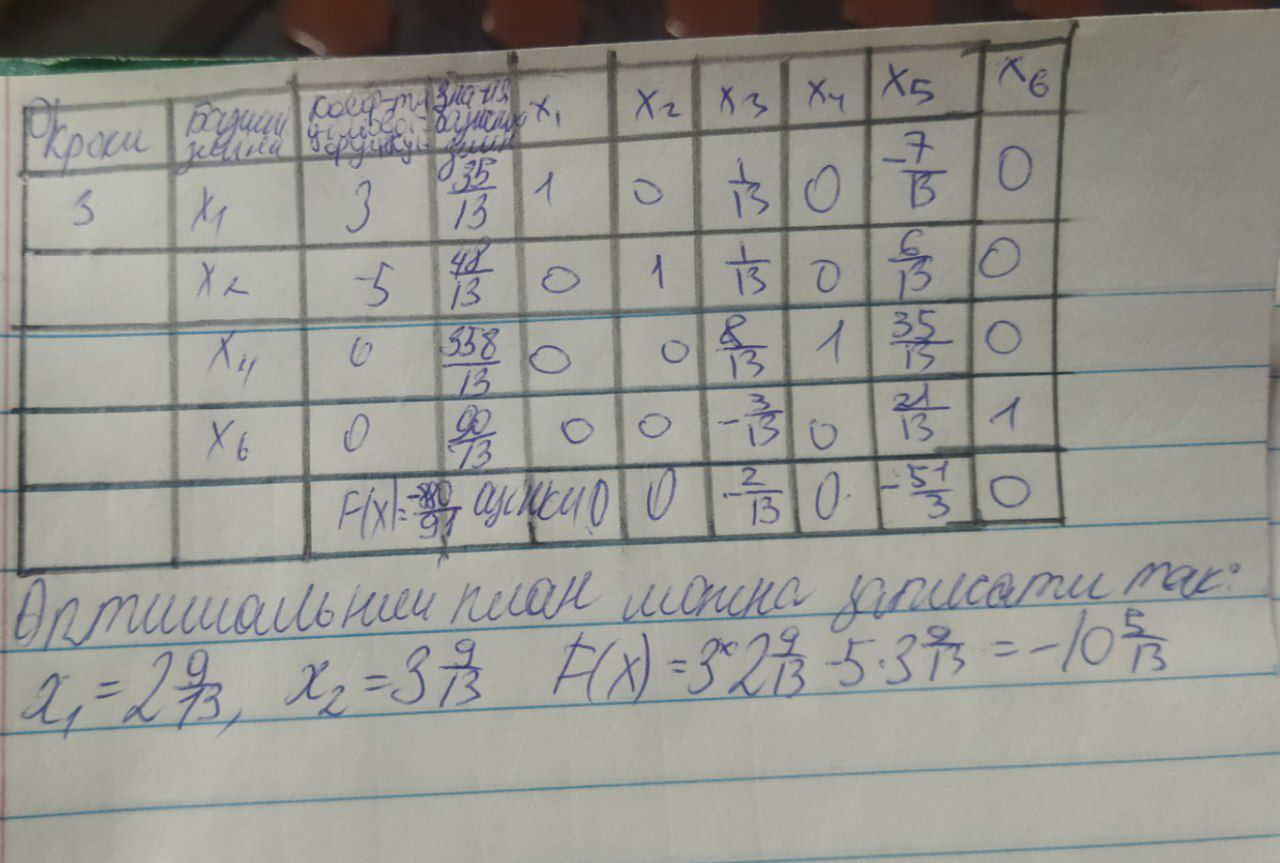 Кроки Базисні змінні коеф-ти цільової функції знач-ня базисних змін x₁ x₂ x₃ x₄ x₅ x₆
3 x₁ 3 35/13 1 0 1/13 0 -7/13 0
x₂ -5 48/13 0 1 1/13 0 6/13 0
x₄ 0 358/13 0 0 8/13 1 35/13 0
x₆ 0 90/13 0 0 -3/13 0 21/13 1
F(x)= оцінки 0 0 -2/13 0 -51/3 0
Оптимальний план можна записати так:
x₁ = 2 9/13, x₂ = 3 9/13 F(x) = 3*2 9/13 -5·3 9/13 = -10 5/13